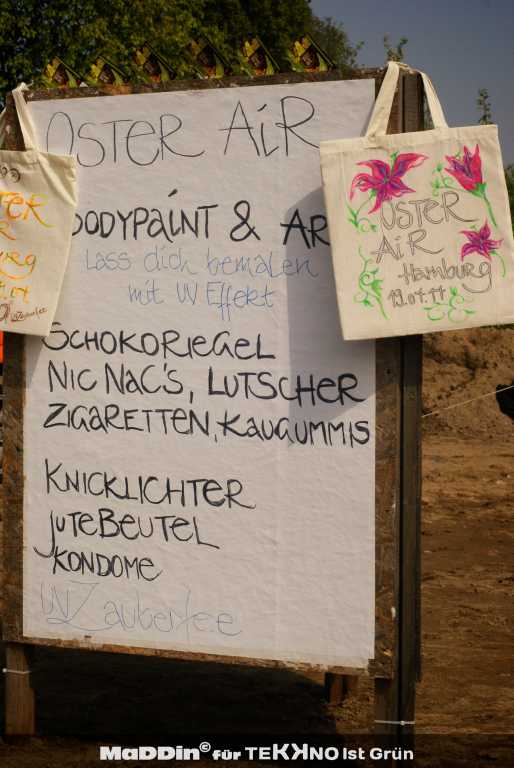 OSTER AiR
BODYPAiNT & AR
Lass dich bemalen
mit UV Effekt
SCHOKORiEGEL
NIC NAC'S, LUTSCHER
ZiGARETTEN, KAUGUMMIS
KNICKLICHTER
JUTEBEUTEL
KONDOME
UVZauberfee
OSTER
AiR
Hamburg
19.04.11
MaDDin© für TEKKNO Ist Grün